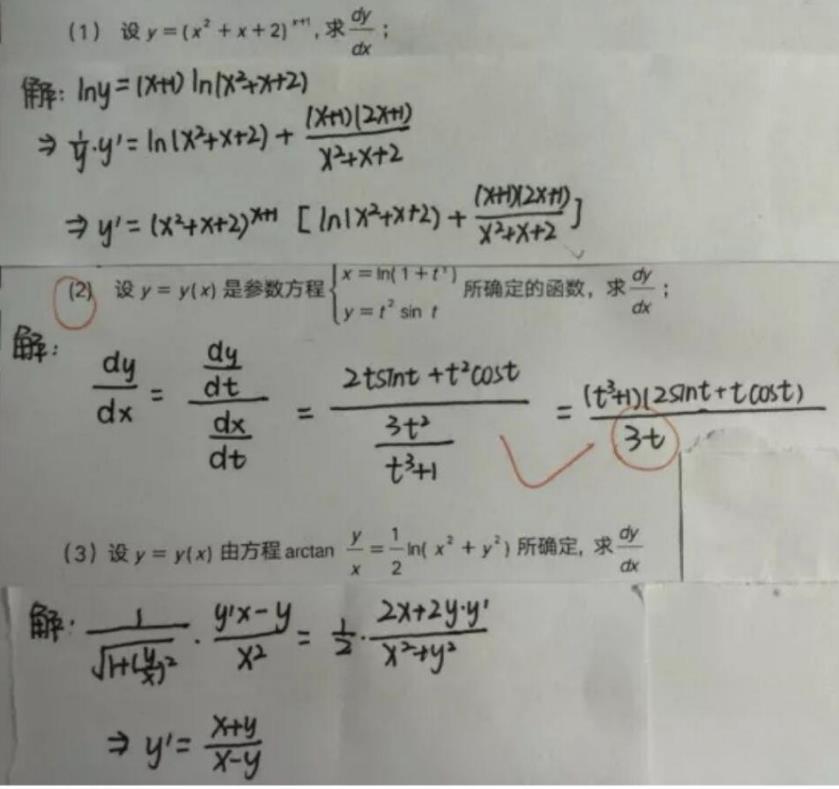 (1) 设 y = (x² + x + 2)ˣ⁺¹, 求 dy/dx ;
解: lny = (x+1) ln(x²+x+2)
⇒ 1/y · y' = ln(x²+x+2) + (x+1)(2x+1)/(x²+x+2)
⇒ y' = (x²+x+2)ˣ⁺¹ [ ln(x²+x+2) + (x+1)(2x+1)/(x²+x+2) ]
(2) 设 y = y(x) 是参数方程 { x = ln(1 + t³) y = t² sin t 所确定的函数, 求 dy/dx ;
解:
dy/dx = (dy/dt)/(dx/dt) = (2tsint + t²cost)/(3t²/(t³+1)) = (t³+1)(2sint + tcost)/3t
(3) 设 y = y(x) 由方程 arctan y/x = 1/2 ln( x² + y² ) 所确定, 求 dy/dx
解: 1/√(1+(y/x)²) · (y'x − y)/x² = 1/2 · (2x+2y·y')/(x²+y²)
⇒ y' = (x+y)/(x−y)